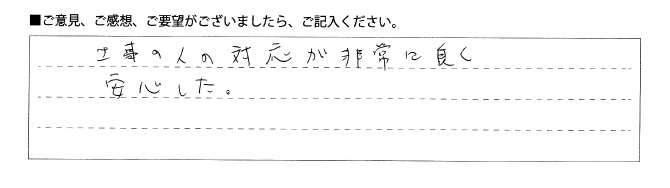 ■ご意見、ご感想、ご要望がございましたら、ご記入ください。
工事の人の対応が非常に良く
安心した。